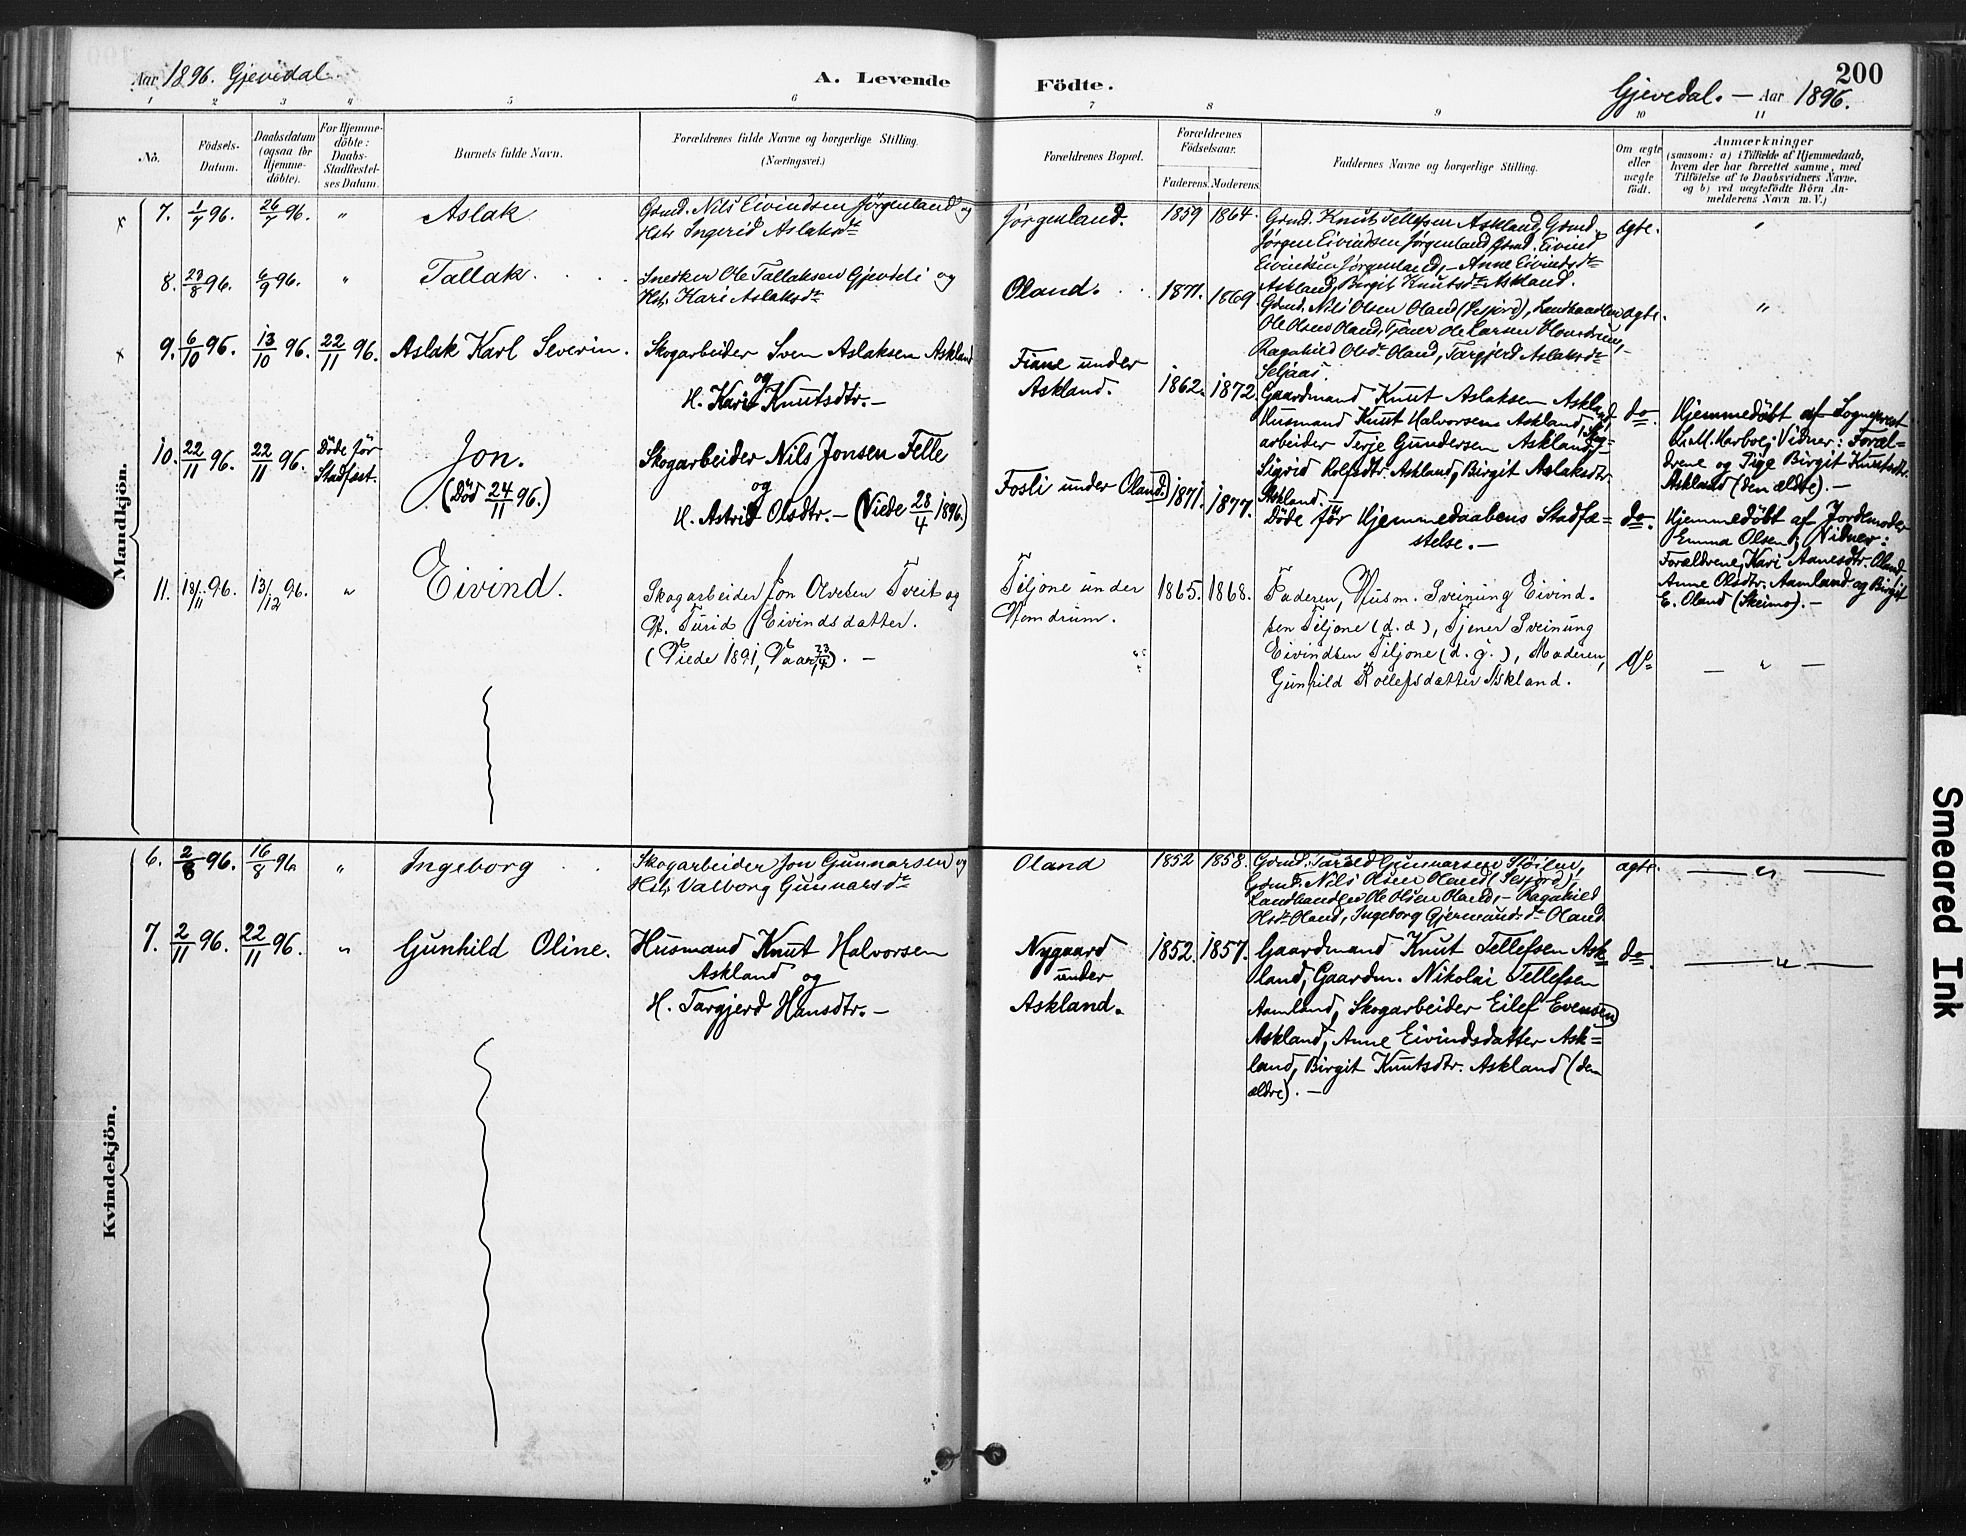 Aar 1896. Gjevidal.
A. Levende
Födte.
Gjevedal. — Aar 1896.
200
1 2 3 4 5 6 7 8 9 10 11
No.
Födsels-Datum.
Daabsdatum (ogsaa for Hjemme-döbte).
For Hjemme-döbte: Daabs-Stadfæstel-ses Datum.
Barnets fulde Navn.
Forældrenes fulde Navne og borgerlige Stilling. (Næringsvei.)
Forældrenes Bopæl.
Forældrenes Födselsaar.
Faderens. Moderens.
Faddernes Navne og borgerlige Stilling.
Om ægte eller uægte födt.
Anmærkninger
(saasom: a) i Tilfælde af Hjemmedaab,
hvem der har forrettet samme, med
Tilföielse af to Daabsvidners Navne,
og b) ved uægtefödte Börn An-
melderens Navn m. V.)
Mandkjön.
7. 1/7 96. 26/7 96. " Aslak
Grmd. Nils Eivindsen Jørgenland og
Hstr Ingerid Aslaksdtr
Jørgenland. 1859 1864.
Grmd. Knut Tellefsen Askland, Grmd.
Jørgen Eivindsen Jørgenland, Grmd. Eivind
Eivindsen Jørgenland, – Anne Eivindsdtr
Askland, Birgit Knutsdtr Askland.
ægte. "
8. 6/9 96. " Tallak.
Snedker Ole Tallaksen Gjevdeli og
Hstr Kari Aslaksdtr
Oland. 1871. 1869
Grmd. Nils Olsen Oland (Sesjord), Landhandler
Ole Olsen Oland, Tjener Ole Larsen
Ragnhild Olsdtr Oland, Targjerd Aslaksdtr
Seljaas.
ægte. "
9. 6/10 96. 13/10 96. 22/11 96. Aslak Karl Severin.
Skogarbeider Sven Aslaksen Askland
og
H. Kari Knutsdtr. –
Fiane under
Askland. 1862. 1872.
Gaardmand Knut Aslaksen Askland,
Husmand Knut Halvorsen Askland, Skog-
arbeider Terje Gundersen Askland,
Sigrid Rolfsdtr. Askland, Birgit Aslaksdtr
Askland. –
do.
Hjemmedøbt af Sogneprest
Vidner: Foræl-
drene og Pige Birgit Knutsdtr.
Askland (den ældre). –
10. 22/11 96. 22/11 96. Døde før
Stadfæst.
Jon.
(Død 24/11 96.)
Skogarbeider Nils Jonsen Felle
og
H. Astrid Olsdtr. – (Viede 28/4 1896.)
Fosli under Oland. 1871. 1877.
Døde før Hjemmedaabens Stadfæ=
stelse. –
do.
Hjemmedøbt af Jordemoder
Emma Olsen; Vidner:
Forældrene, Kari Aanesdtr. Oland
Anne Olsdtr. Aamland og Birgit
E. Oland (Skeimo). –
11. 18/11 96. 13/12 96. " Eivind.
Skogarbeider Jon Olvesen Tveit og
H. Turid Eivindsdatter.
(Viede 1891, Vaar 23/4). –
Tiljone under
Homdrum.
1865. 1868.
Faderen, Husm. Sveinung Eivind-
sen Tiljone (d. æ), Tjener Sveinung
Eivindsen Tiljone (d. y.), Moderen,
Gunhild Rollefsdatter Askland.
do – " –
Kvindekjön.
6. 2/8 96. 16/8 96 " Ingeborg
Skogarbeider Jon Gunnarsen og
Hstr Valborg Gunnarsdtr
Oland 1852 1858.
Grmd. Gunnarsen
Grmd. Nils Olsen Oland (Sesjord),
Landhandler Ole Olsen Oland, – Ragnhild
Olsdtr Oland, Ingeborg Gjermundsdtr Oland
ægte. — " —
7. 2/11 96. 22/11 96. " Gunhild Oline.
Husmand Knut Halvorsen
Askland og
H. Targjerd Hansdtr. –
Nygaard
under
Askland. 1852. 1857.
Gaardmand Knut Tellefsen Ask=
land, Gaardm. Nikolai Tellefsen
Aamland, Skogarbeider Eilef Evensen
Askland, Anne Eivindsdatter Ask=
land, Birgit Knutsdtr. Askland (den
ældre). –
do. — " —
Smeared Ink